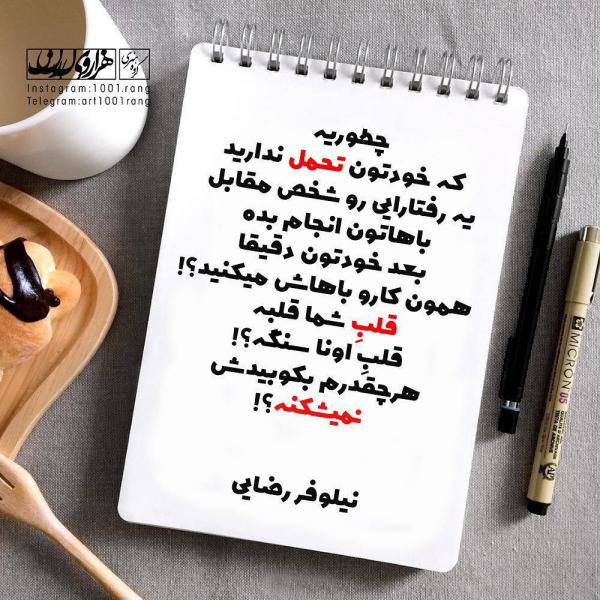 هزار و یک رنگ
گروه هنری
Instagram:1001.rang
Telegram:art1001rang
چطوریه
که خودتون تحمل ندارید
یه رفتارایی رو شخص مقابل
باهاتون انجام بده
بعد خودتون دقیقا
همون کارو باهاش میکنید؟!
قلبِ شما قلبه
قلبِ اونا سنگه؟!
هرچقدرم بکوبیدش
نمیشکنه؟!
نیلوفر رضایی
MICRON 05